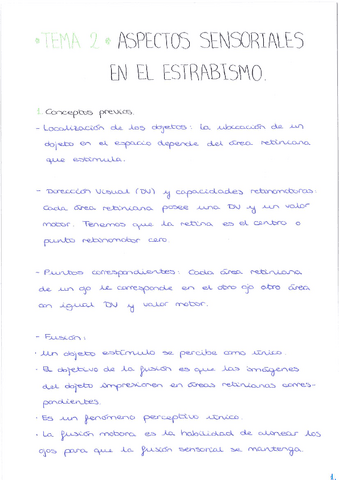 •TEMA 2• ASPECTOS SENSORIALES
EN EL ESTRABISMO.
1. Conceptos previos.
- Localización de los objetos: la ubicación de un
objeto en el espacio depende del área retiniana
que estimula.
- Dirección Visual (DV) y capacidades retinomotoras:
Cada área retiniana posee una DV y un valor
motor. Tenemos que la retina es el centro o
punto retinomotor cero.
- Puntos correspondientes: Cada área retiniana
de un ojo le corresponde en el otro ojo otra área
con igual DV y valor motor.
- Fusión:
· Un objeto estímulo se percibe como único.
· El objetivo de la fusión es que las imágenes
del objeto impresionen en áreas retinianas corres-
pondientes.
· Es un fenómeno perceptivo único.
· La fusión motora es la habilidad de alinear los
ojos para que la fusión sensorial se mantenga.
1.